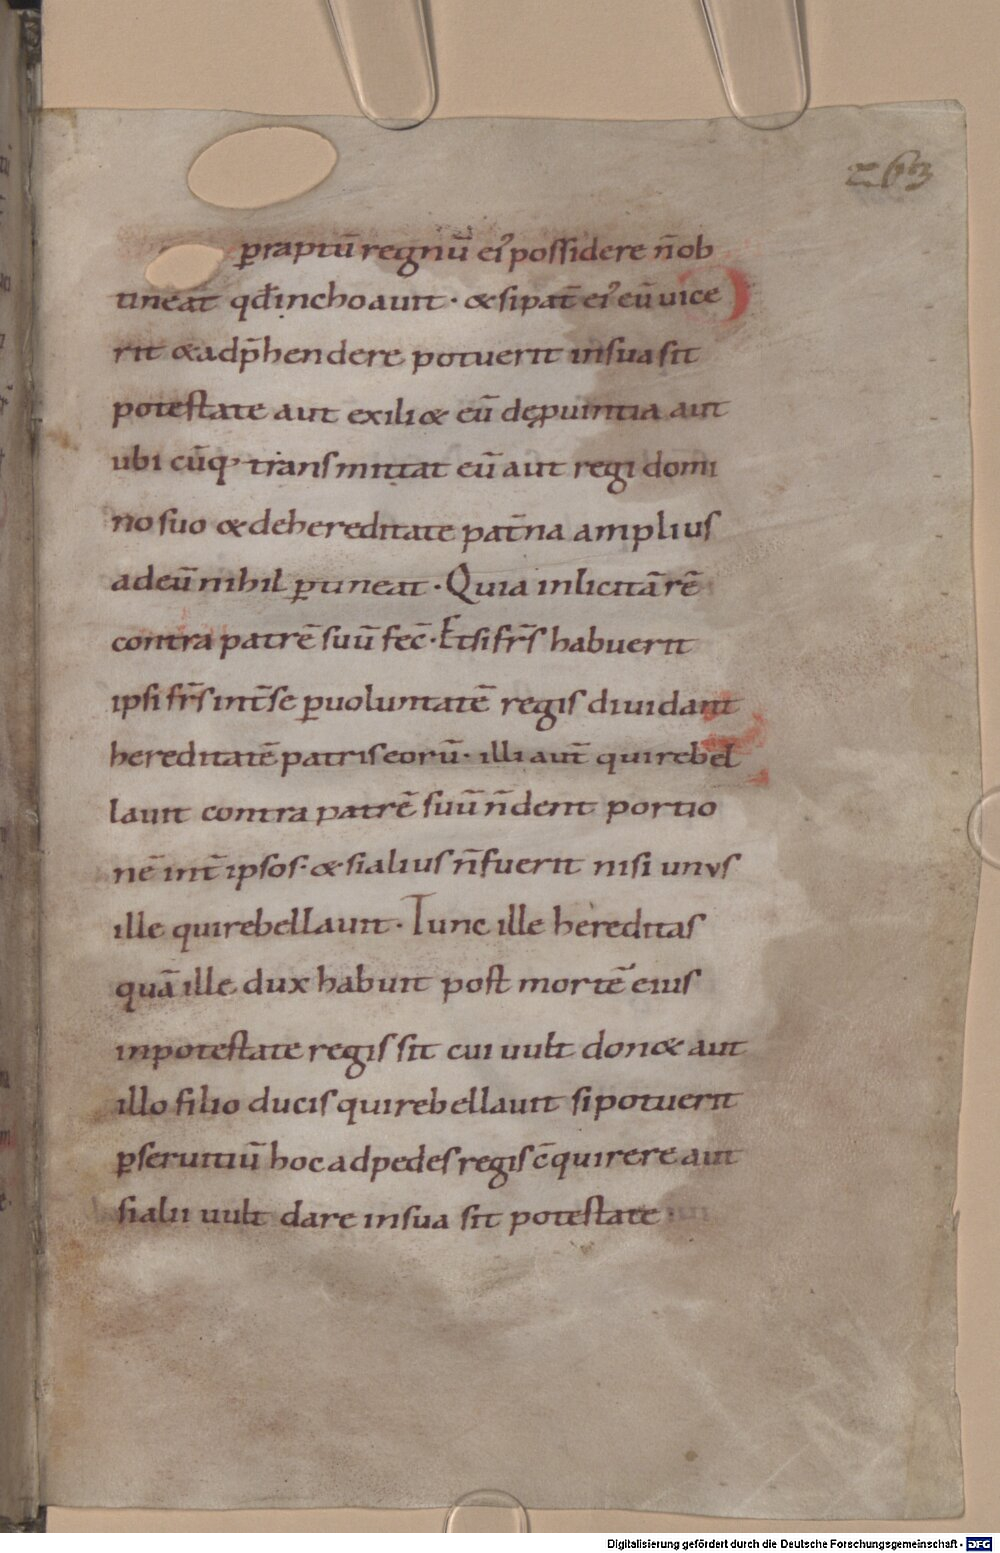 263
p̄raptū regnū ei᾽ possidere n̄ob
tineat qđinchoauit · &sipat̄ ei᾽ eū uice
rit &adp̄hendere potuerit insuasit
potestate aut exili& eū deꝓuintia aut
ubi cūq· transmittat eū aut regi domi
no suo &dehereditate pat̄na amplius
adeū nihil p̄tineat · Quia inlicitā rē
contra patrē suū fec̄ · Etsi fr̄s habuerit
ipsi fr̄s int̄se p̄uoluntatē regis diuidant
hereditatē patriseorū · illi aut̄ quirebel
lauit contra patrē suū n̄dent portio
nē int̄ ipsos · &sialius n̄fuerit nisi unus
ille quirebellauit · Tunc ille hereditas
quā ille dux habuit post mortē eius
inpotestate regis sit cui uult don& aut
illo filio ducis quirebellauit sipotuerit
p̄seruitiū hoc adpedes regis c̄quirere aut
sialii uult dare insua sit potestate
Digitalisierung gefördert durch die Deutsche Forschungsgemeinschaft - DFG